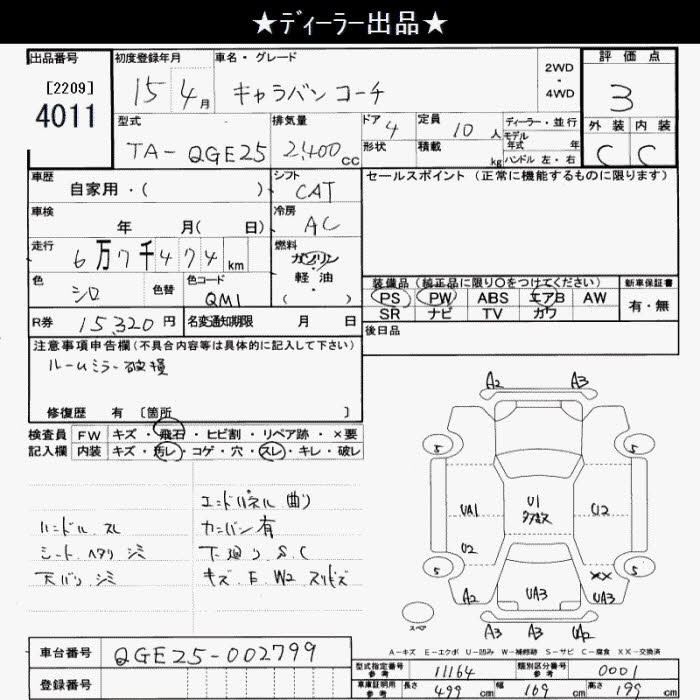 ★ディーラー出品★
出品番号
[2209]
4011
初度登録年月
15 4月
車名・グレード
キャラバン コーチ
2WD
・
4WD
評価点
3
型式
TA-QGE25
排気量
2,400cc
ドア 4
形状
定員 10人
積載 kg
ディーラー・並行
モデル
年式 年
ハンドル 左・右
外装 内装
C C
車歴
自家用・( )
シフト
CAT
セールスポイント (正常に機能するものに限ります)
車検
年 月( 日)
冷房
AC
走行
6万7千474km
燃料
ガソリン
・
軽油
( )
色
シロ
色替
色コード
QM1
装備品(純正品に限り○をつけてください)
PS PW ABS エアB AW
SR ナビ TV カワ
新車保証書
有・無
R券 15,320円
名変通知期限 月 日
後日品
注意事項申告欄(不具合内容等は具体的に記入して下さい)
ルームミラー破損
修復歴 有 〔箇所 〕
検査員 FW キズ・飛石・ヒビ割・リペア跡・×要
記入欄 内装 キズ・汚レ・コゲ・穴・スレ・キレ・破レ
エンドパネル曲リ
ハンドル.スレ
カンバン有
シート.ヘタリ シミ
下廻り S C
天バリ.シミ
キズ.E.W2
A2 A3
5 5
UA1 U1 U2
U2
××
5 5
A2 UA3 UA3
A3 A3 UA2
スペア
A-キズ E-エクボ U-凹み W-補修跡 S-サビ C-腐食 XX-交換済
車台番号
QGE25-002799
登録番号
型式指定番号
参考
11164
類別区分番号
参考
0001
車庫証明用
参考
長さ 499cm
幅 169cm
高さ 199cm